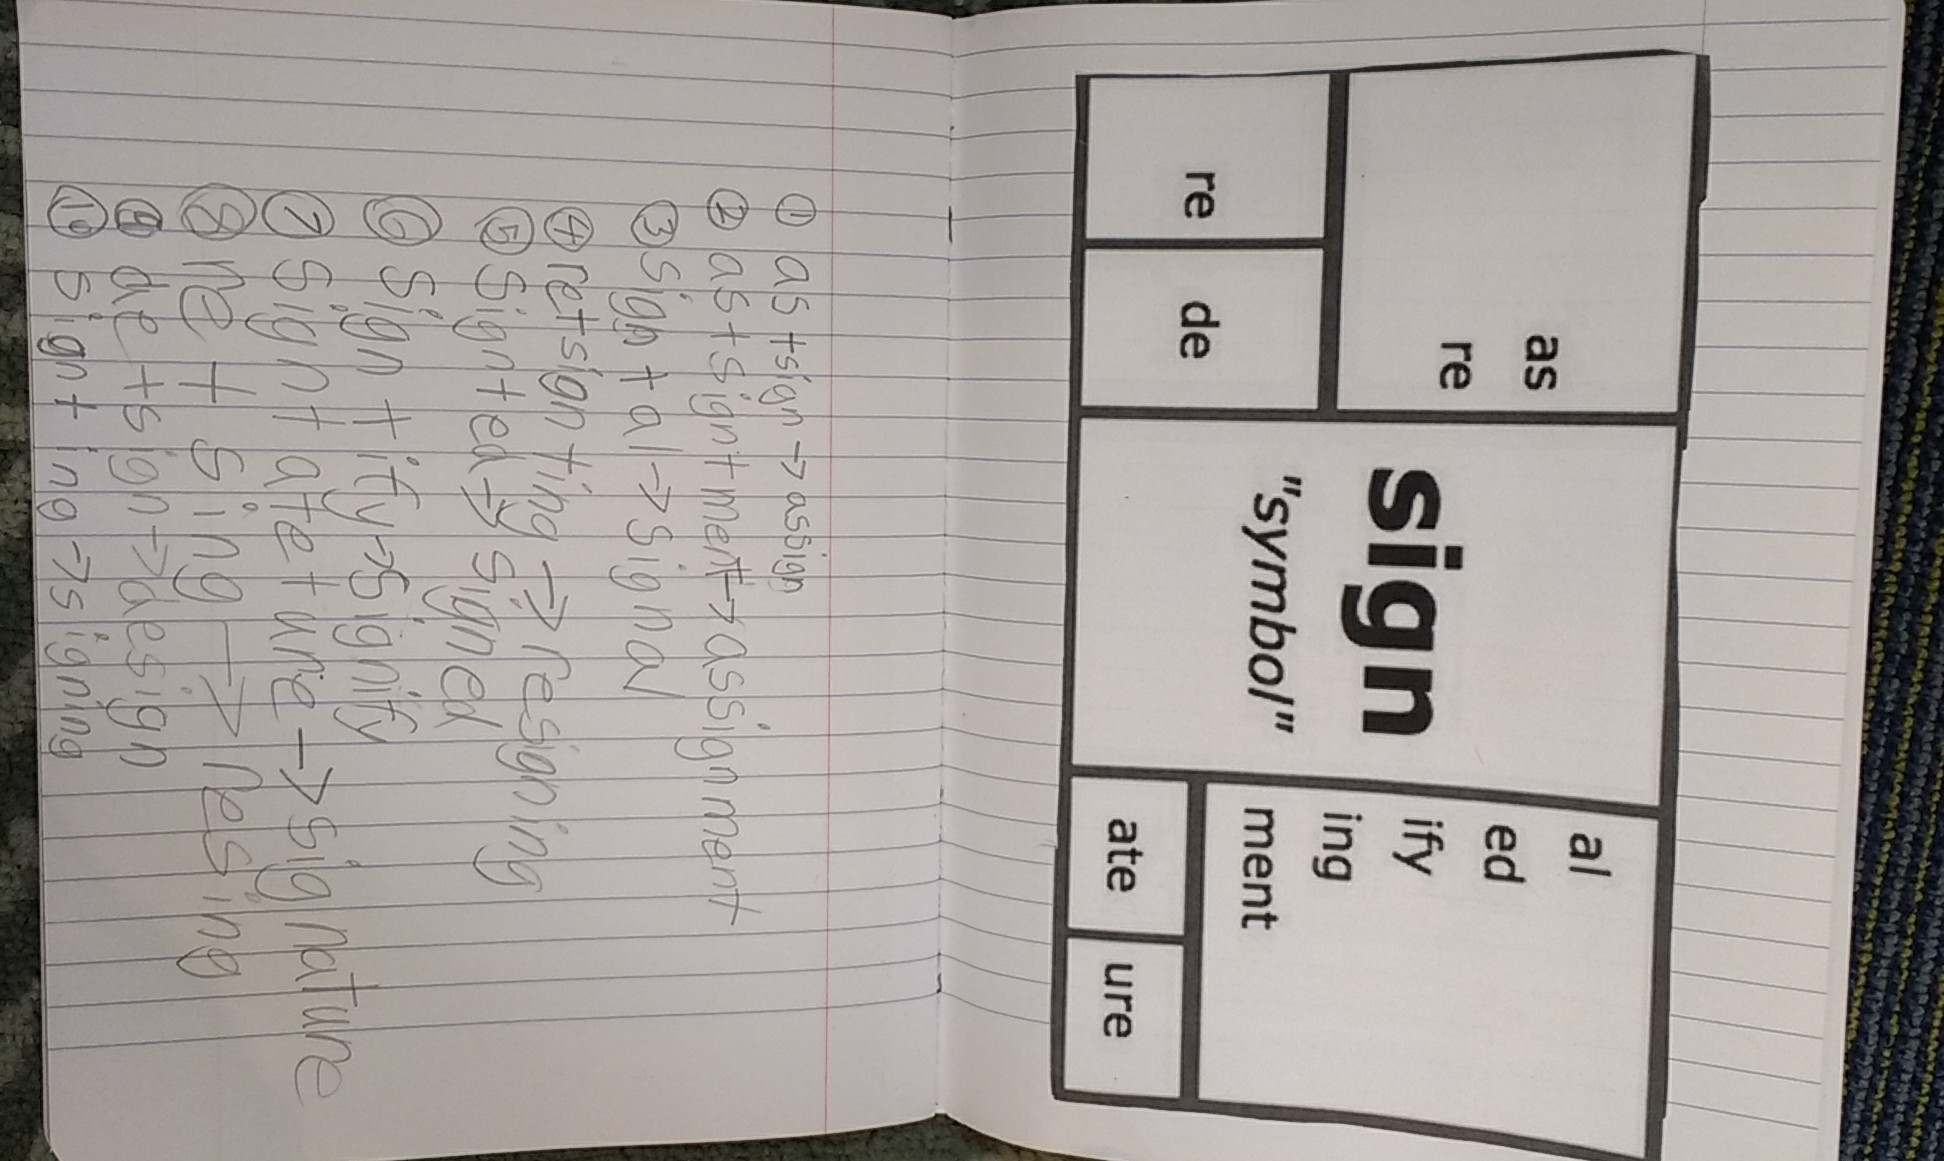 as
re
re de
sign
"symbol"
al
ed
ify
ing
ment
ate ure
① as + sign → assign
② as + sign + ment → assignment
③ sign + al → signal
④ re + sign + ing → resigning
⑤ sign + ed → signed
⑥ sign + ify → signify
⑦ sign + ate + ure → signature
⑧ re + sing → resing
⑨ de + sign → design
⑩ sign + ing → signing